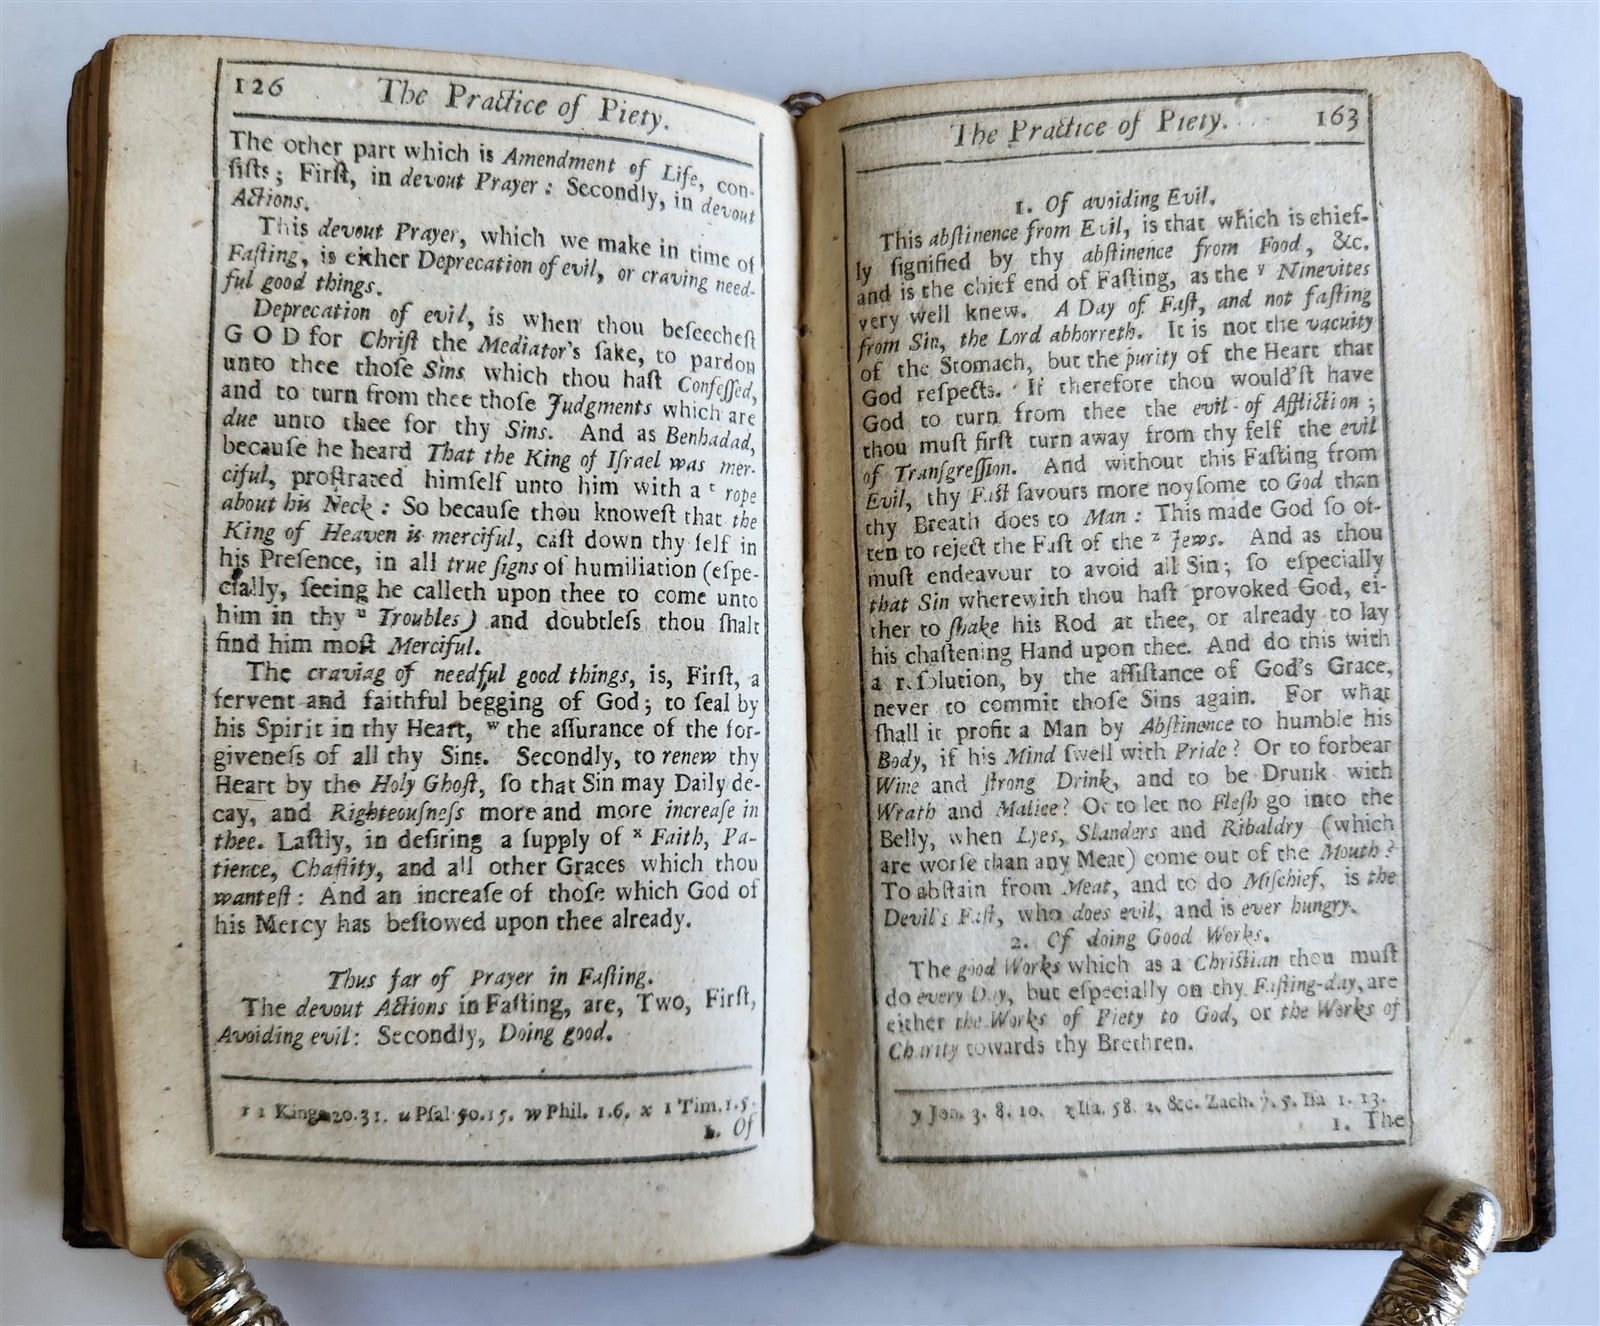 126 The Practice of Piety.
The other part which is Amendment of Life, con-
ſiſts; Firſt, in devout Prayer: Secondly, in devout
Actions.
This devout Prayer, which we make in time of
Faſting, is either Deprecation of evil, or craving need-
ful good things.
Deprecation of evil, is when thou beſeecheſt
GOD for Chriſt the Mediator's ſake, to pardon
unto thee thoſe Sins which thou haſt Confeſſed,
and to turn from thee thoſe Judgments which are
due unto thee for thy Sins. And as Benhadad,
becauſe he heard That the King of Iſrael was mer-
ciful, proſtrated himſelf unto him with a t rope
about his Neck: So becauſe thou knoweſt that the
King of Heaven is merciful, caſt down thy ſelf in
his Preſence, in all true ſigns of humiliation (eſpe-
cially, ſeeing he calleth upon thee to come unto
him in thy u Troubles) and doubtleſs thou ſhalt
find him moſt Merciful.
The craviag of needful good things, is, Firſt, a
fervent and faithful begging of God; to ſeal by
his Spirit in thy Heart, w the aſſurance of the for-
giveneſs of all thy Sins. Secondly, to renew thy
Heart by the Holy Ghoſt, ſo that Sin may Daily de-
cay, and Righteouſneſs more and more increaſe in
thee. Laſtly, in deſiring a ſupply of x Faith, Pa-
tience, Chaſtity, and all other Graces which thou
wanteſt: And an increaſe of thoſe which God of
his Mercy has beſtowed upon thee already.
Thus far of Prayer in Faſting.
The devout Actions in Faſting, are, Two, Firſt,
Avoiding evil: Secondly, Doing good.
t 1 Kings 20.31. u Pſal 50.15. w Phil. 1.6. x 1 Tim.1.5.
1. Of
The Practice of Piety. 163
1. Of avoiding Evil.
This abſtinence from Evil, is that which is chief-
ly ſignified by thy abſtinence from Food, &c.
and is the chief end of Faſting, as the y Ninevites
very well knew. A Day of Faſt, and not faſting
from Sin, the Lord abhorreth. It is not the vacuity
of the Stomach, but the purity of the Heart that
God reſpects. If therefore thou would'ſt have
God to turn from thee the evil of Affliction;
thou muſt firſt turn away from thy ſelf the evil
of Tranſgreſſion. And without this Faſting from
Evil, thy Faſt ſavours more noyſome to God than
thy Breath does to Man: This made God ſo of-
ten to reject the Faſt of the z Jews. And as thou
muſt endeavour to avoid all Sin; ſo eſpecially
that Sin wherewith thou haſt provoked God, ei-
ther to ſhake his Rod at thee, or already to lay
his chaſtening Hand upon thee. And do this with
a reſolution, by the aſſiſtance of God's Grace,
never to commit thoſe Sins again. For what
ſhall it profit a Man by Abſtinence to humble his
Body, if his Mind ſwell with Pride? Or to forbear
Wine and ſtrong Drink, and to be Drunk with
Wrath and Malice? Or to let no Fleſh go into the
Belly, when Lyes, Slanders and Ribaldry (which
are worſe than any Meat) come out of the Mouth?
To abſtain from Meat, and to do Miſchief, is the
Devil's Faſt, who does evil, and is ever hungry.
2. Of doing Good Works.
The good Works which as a Chriſtian thou muſt
do every Day, but eſpecially on thy Faſting-day, are
either the Works of Piety to God, or the Works of
Charity towards thy Brethren.
y Jon. 3. 8. 10. z Iſa. 58. 2. &c. Zach. 7. 5. Iſa 1. 13.
1. The